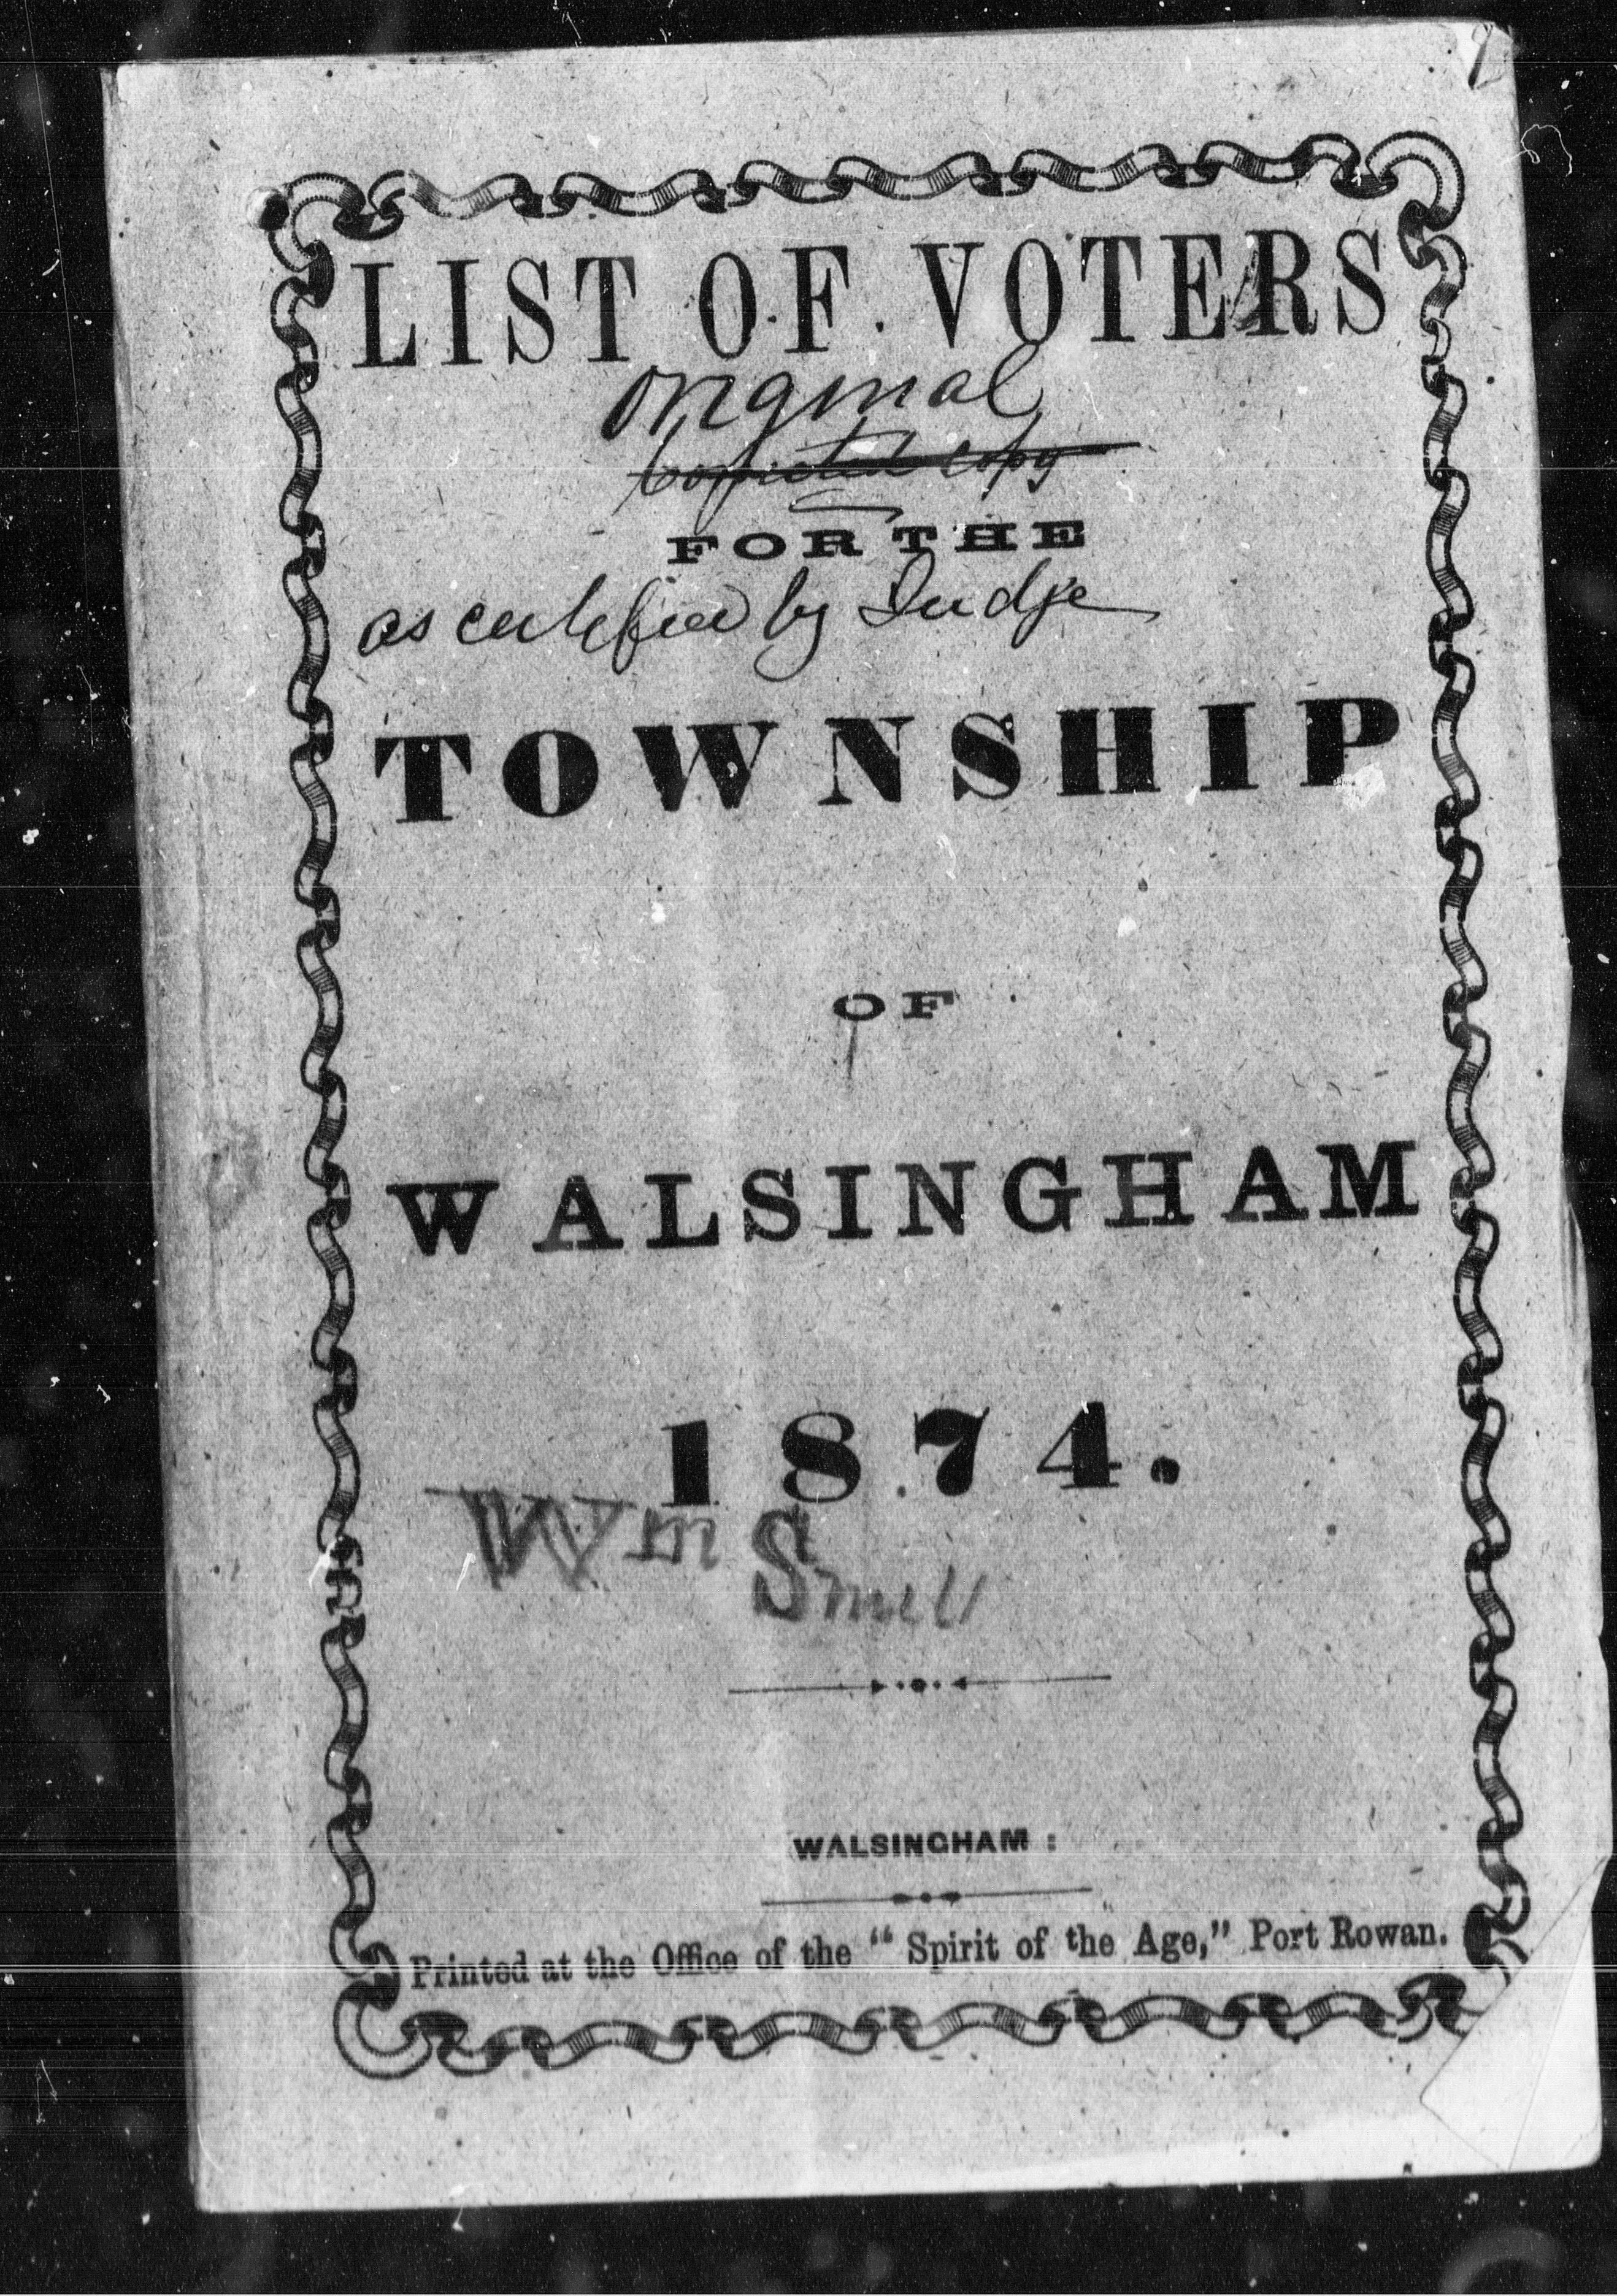 LIST OF VOTERS
original
Corrected Copy
FOR THE
as certified by Judge
TOWNSHIP
OF
WALSINGHAM
1874.
Wm S
WALSINGHAM :
Printed at the Office of the "Spirit of the Age," Port Rowan.